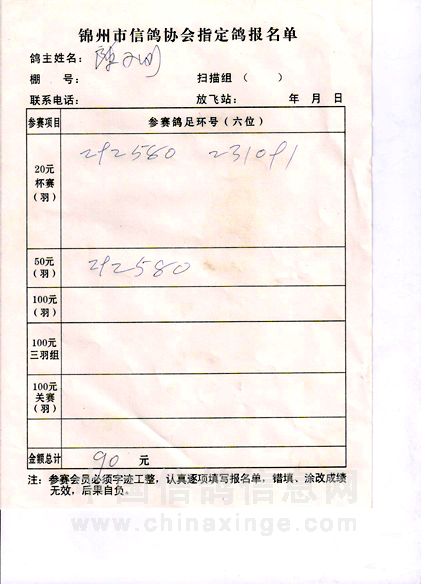 锦州市信鸽协会指定鸽报名单
鸽主姓名：
棚 号： 扫描组（ ）
联系电话： 放飞站： 年 月 日
参赛项目 参赛鸽足环号（六位）
20元 292580 231091
杯赛
（羽）
50元 292580
（羽）
100元
（羽）
100元
三羽组
100元
关赛
（羽）
金额总计 90 元
注：参赛会员必须字迹工整，认真逐项填写报名单，错填、涂改成绩
无效，后果自负。
中国信鸽信息网
www.chinaxinge.com